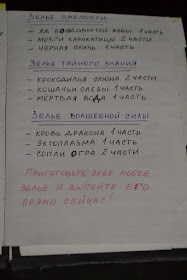 Зелье смелости
– яд бородавчатой жабы 1 часть
– мозги каракатицы 2 части
– чёрная слизь 1 часть
Зелье тайного знания
– крокодилья слюна 2 части
– кошачьи слёзы 1 часть
– мёртвая вода 1 часть
Зелье волшебной силы
– кровь дракона 1 часть
– эктоплазма 1 часть
– сопли огра 2 части
Приготовьте себе любое
зелье и выпейте его
прямо сейчас!